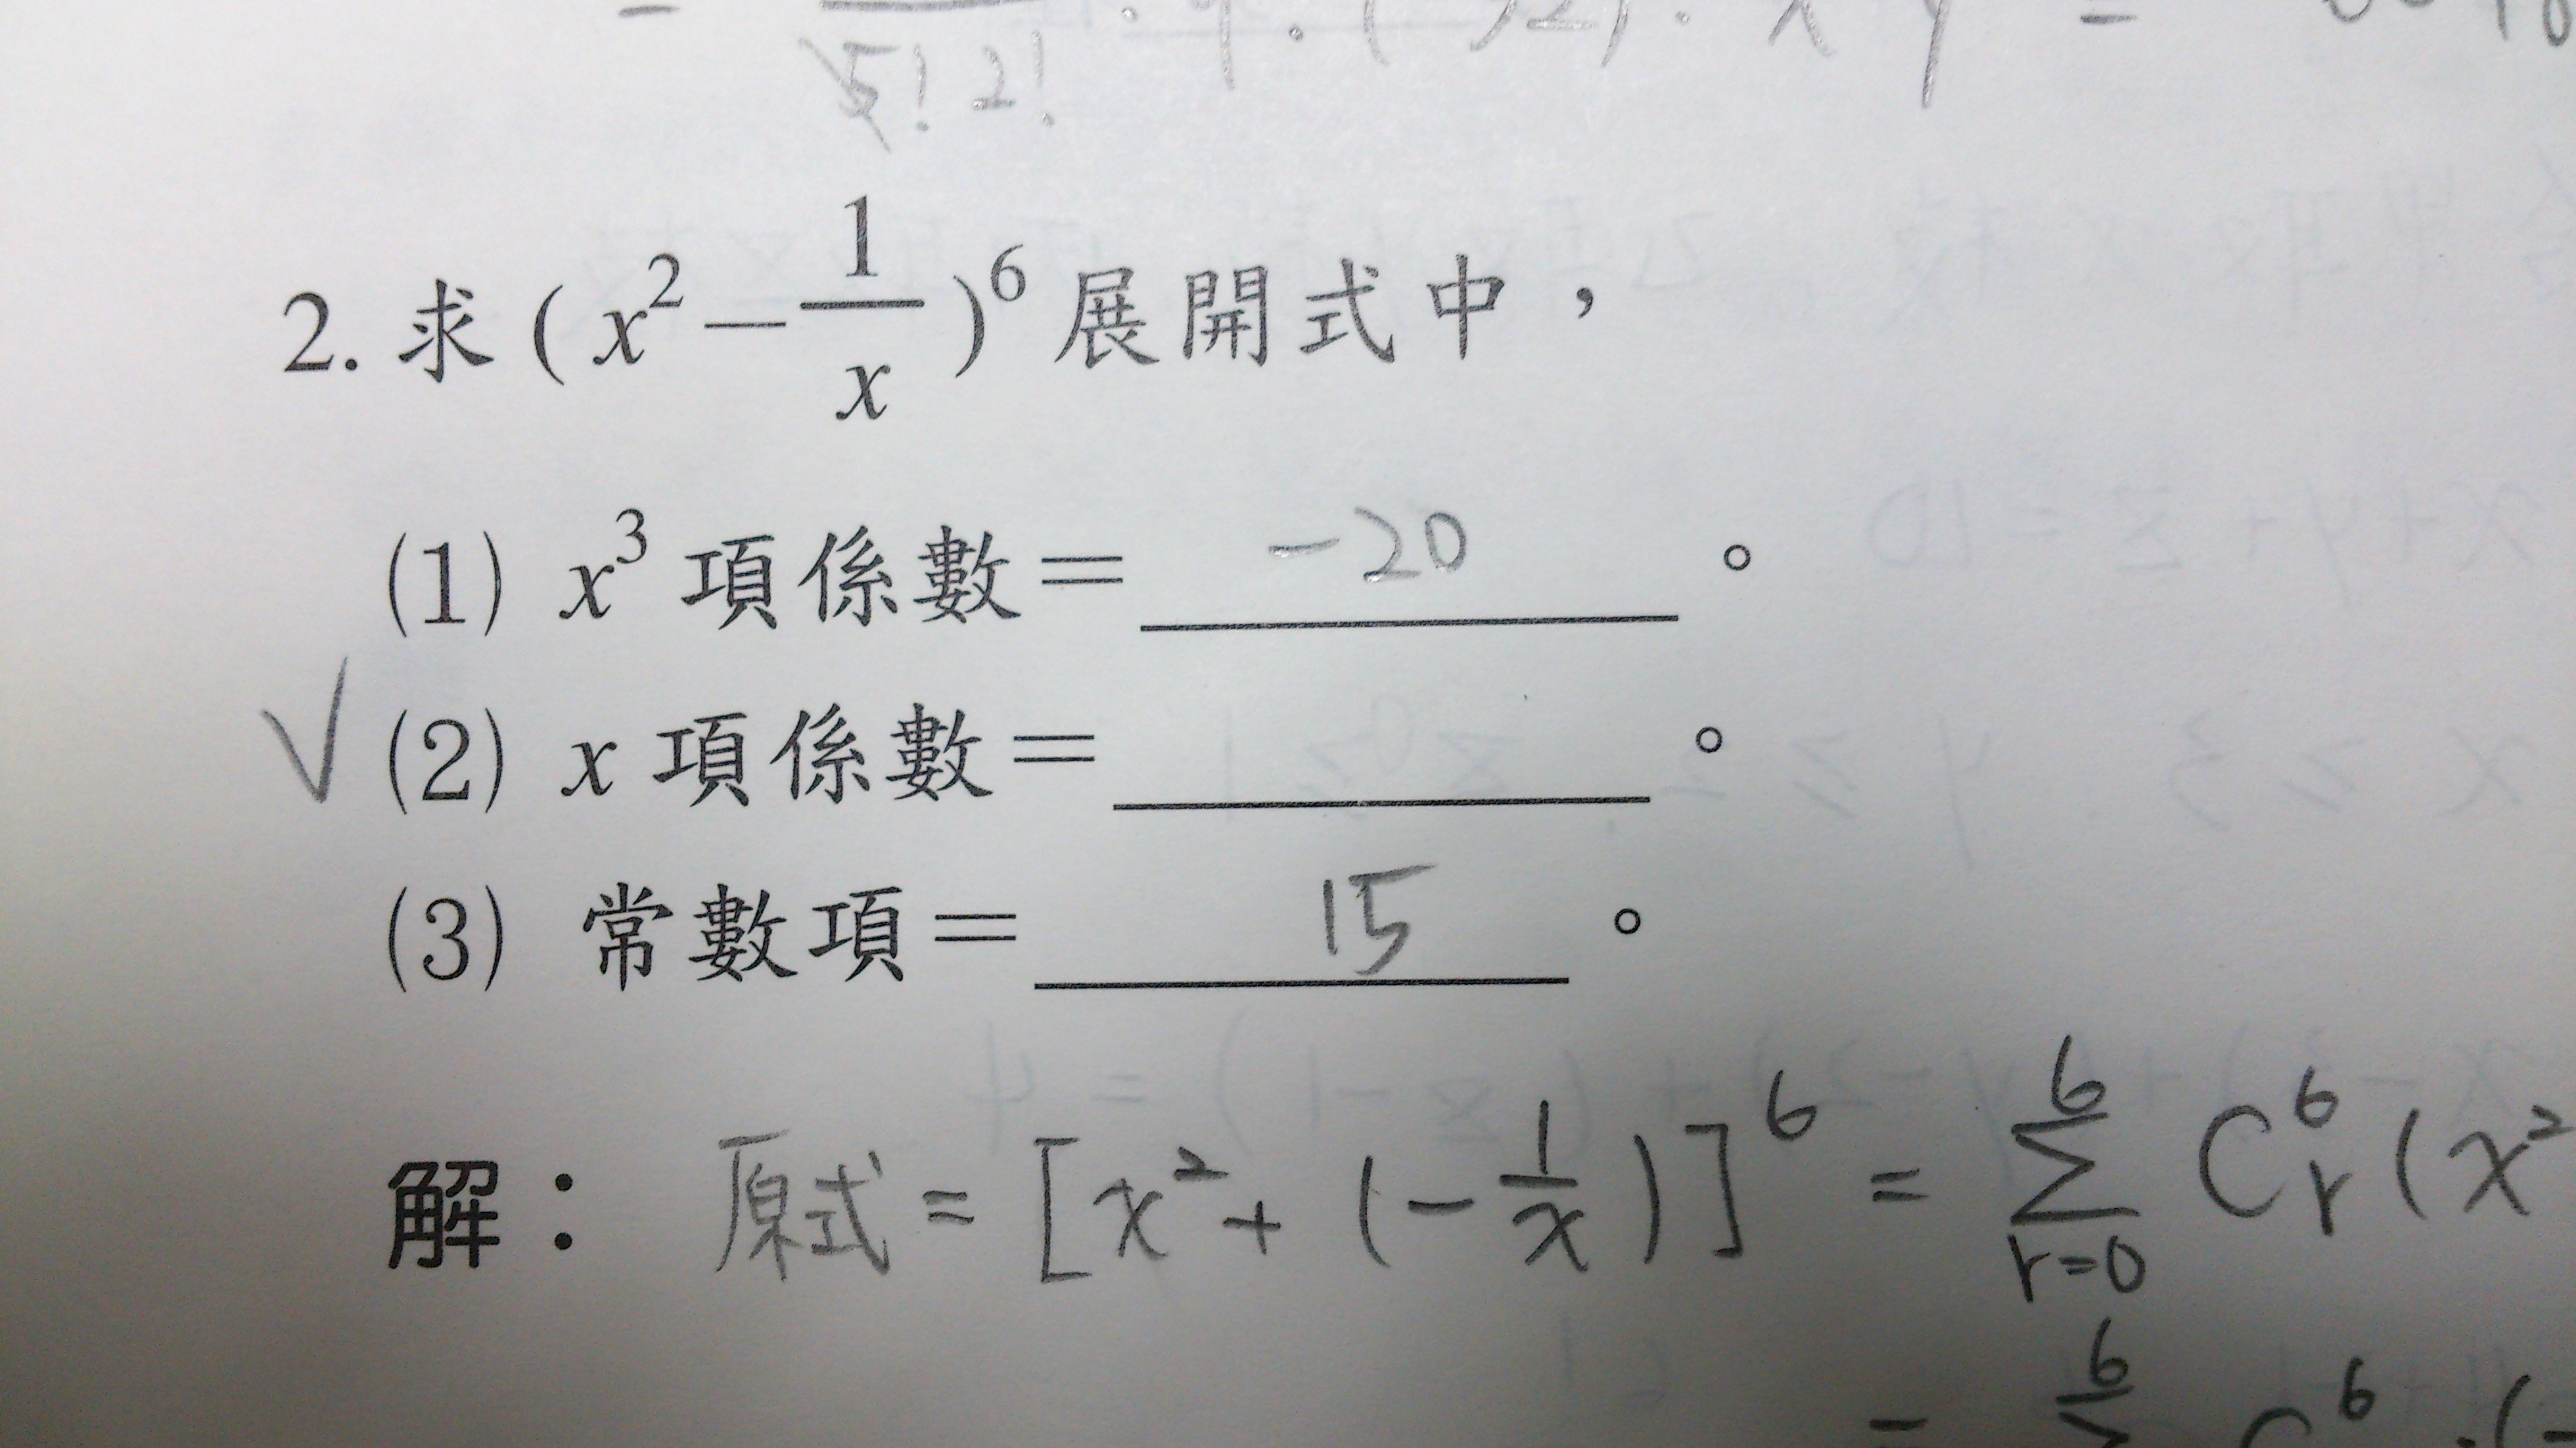 5! 2!
2. 求 ( x² − 1/x )⁶ 展開式中，
(1) x³ 項係數＝ -20 。
√ (2) x 項係數＝ 。
(3) 常數項＝ 15 。
解： 原式 = [ x² + (- 1/x ) ]⁶ = ∑ 6 r=0 C⁶ᵣ (x²
= 6 C⁶ · (-